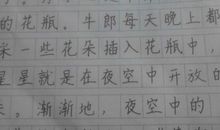 的花瓶。牛郎每天晚上都
采一些花朵插入花瓶中，
星星就是在夜空中开放的
。渐渐地，夜空中的